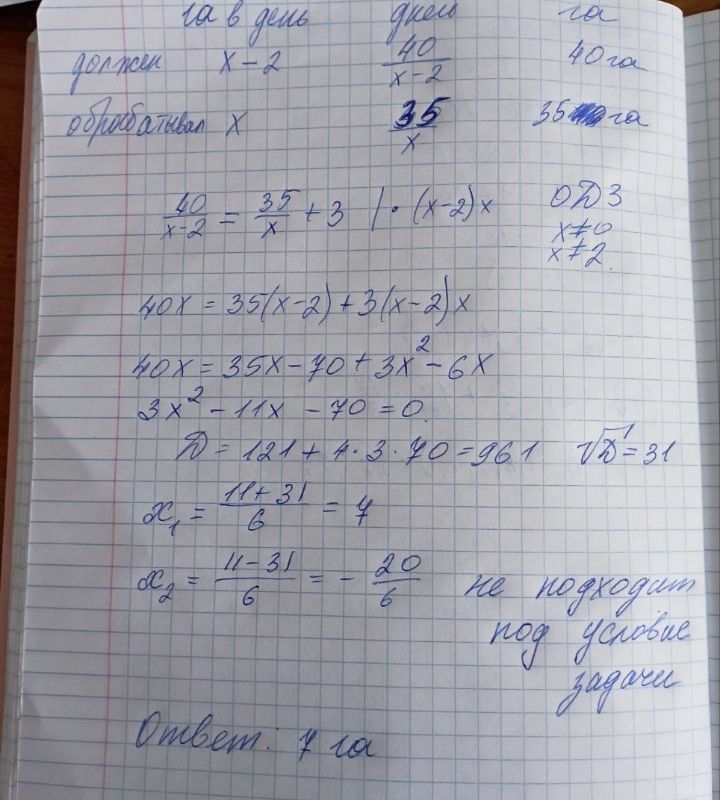 га в день дней га
должен x-2 40/(x-2) 40 га
обрабатывал x 35/x 35 га
40/(x-2) = 35/x + 3 | · (x-2)x ОДЗ
x≠0
x≠2.
40x = 35(x-2) + 3(x-2)x
40x = 35x - 70 + 3x² - 6x
3x² - 11x - 70 = 0.
D = 121 + 4·3·70 = 961 √D = 31
x₁ = (11+31)/6 = 7
x₂ = (11-31)/6 = - 20/6 не подходит
под условие
задачи
Ответ: 7 га